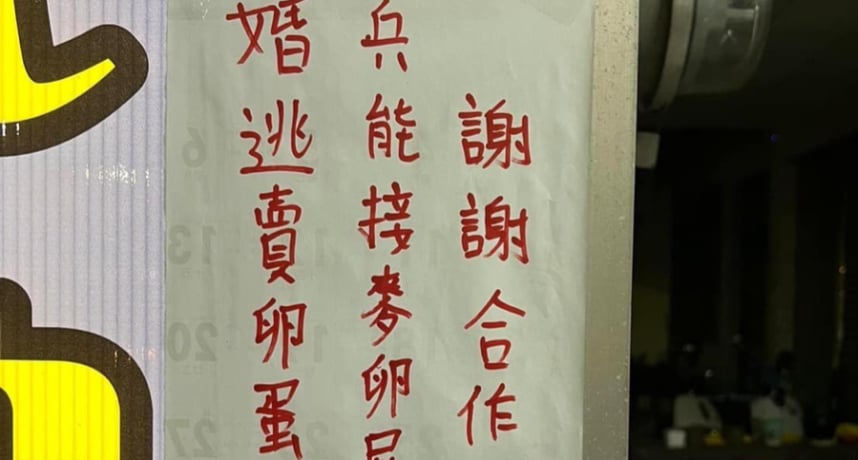 婚逃賣卵蛋
兵能接麥卵
謝謝合作